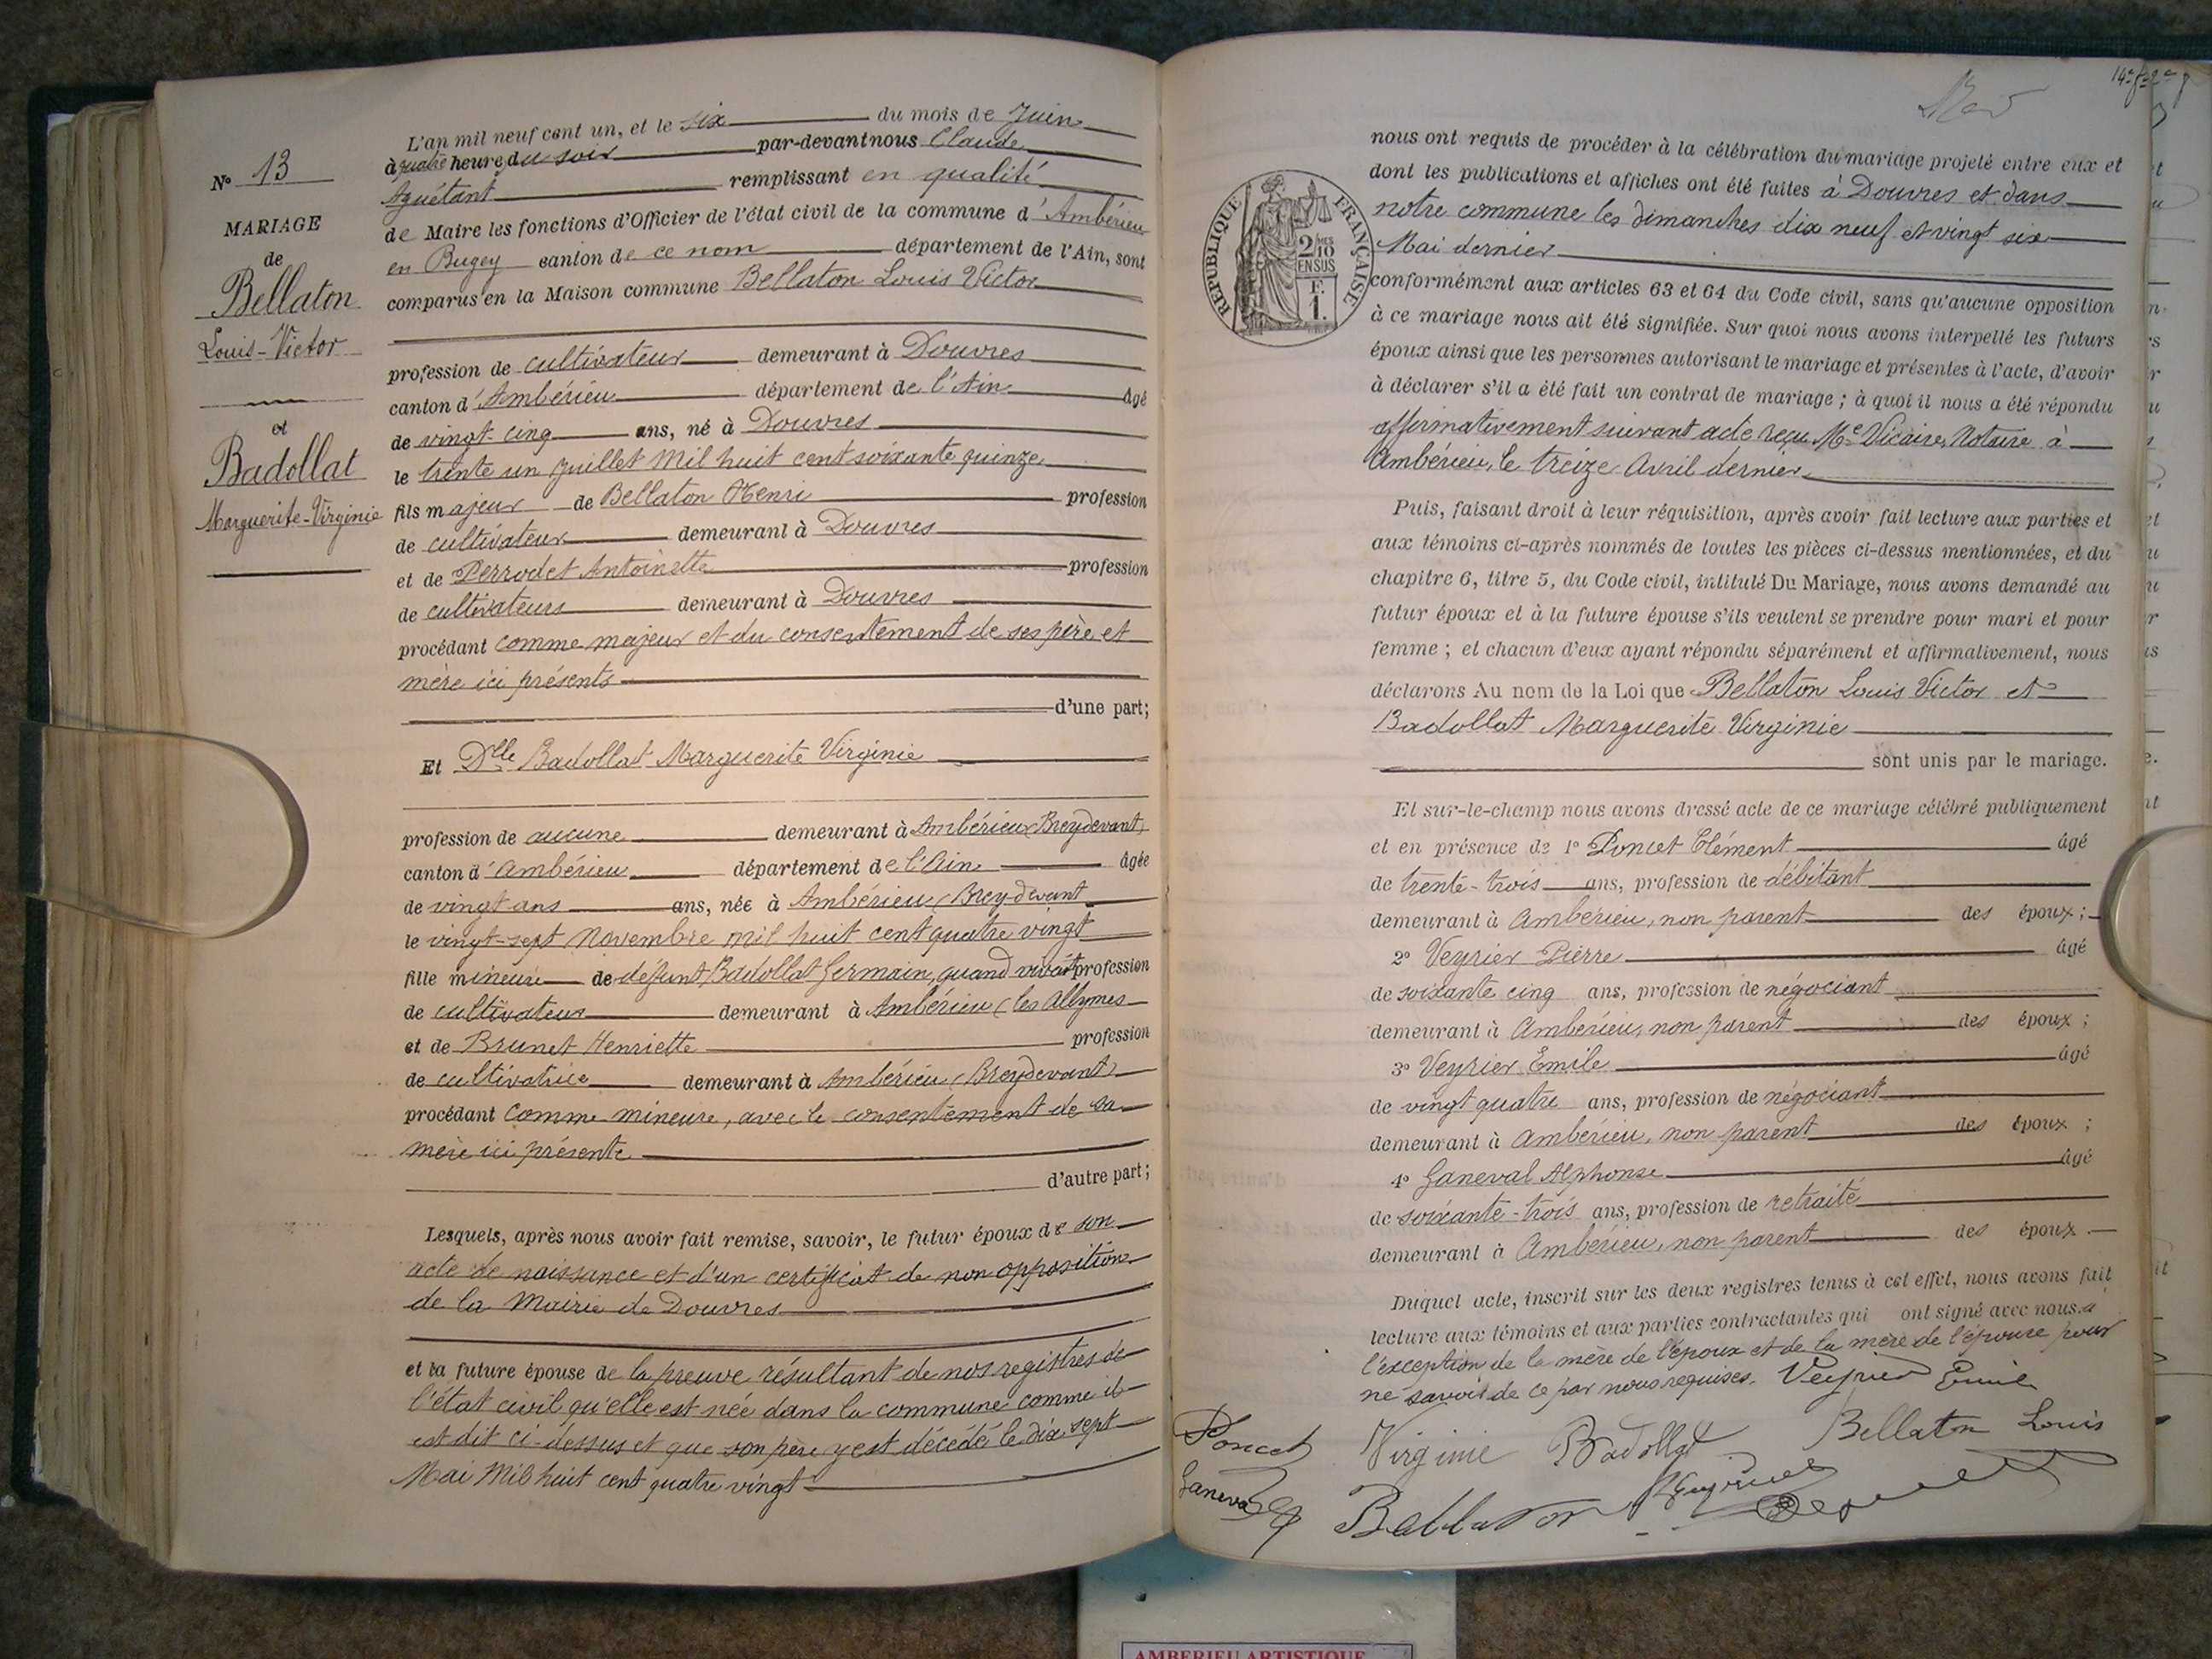 N° 13
MARIAGE
de
Bellaton
Louis-Victor
et
Badollat
Marguerite-Virginie
L'an mil neuf cent un, et le six du mois de Juin
à quatre heure du soir par-devant nous Claude
Aguétant remplissant en qualité
de Maire les fonctions d'Officier de l'état civil de la commune d'Ambérieu
en Bugey canton de ce nom département de l'Ain, sont
comparus en la Maison commune Bellaton Louis Victor
profession de cultivateur demeurant à Douvres
canton d'Ambérieu département de l'Ain âgé
de vingt-cinq ans, né à Douvres
le trente un juillet Mil huit cent soixante quinze
fils majeur de Bellaton Henri profession
de cultivateur demeurant à Douvres
et de Perrodet Antoinette profession
de cultivateurs demeurant à Douvres
procédant comme majeur et du consentement de ses père et
mère ici présents
d'une part;
Et Dlle Badollat Marguerite Virginie
profession de aucune demeurant à Ambérieu (Breydevant)
canton d'Ambérieu département de l'Ain âgée
de vingt ans ans, née à Ambérieu (Brey-devant
le vingt-sept Novembre mil huit cent quatre vingt
fille mineure de défunt Badollat Germain, quand vivait profession
de cultivateur demeurant à Ambérieu (les Allymes
et de Brunet Henriette profession
de cultivatrice demeurant à Ambérieu (Breydevant)
procédant comme mineure, avec le consentement de sa
mère ici présente
d'autre part;
Lesquels, après nous avoir fait remise, savoir, le futur époux de son
acte de naissance et d'un certificat de non opposition
de la Mairie de Douvres
et la future épouse de la preuve résultant de nos registres de
l'état civil qu'elle est née dans la commune comme il
est dit ci-dessus et que son père y est décédé le dix sept
Mai Mil huit cent quatre vingt
nous ont requis de procéder à la célébration du mariage projeté entre eux et
dont les publications et affiches ont été faites à Douvres et dans
notre commune les dimanches dix neuf et vingt six
Mai dernier
RÉPUBLIQUE FRANÇAISE
2/10 MES
EN SUS
F.
1.
conformément aux articles 63 et 64 du Code civil, sans qu'aucune opposition
à ce mariage nous ait été signifiée. Sur quoi nous avons interpellé les futurs
époux ainsi que les personnes autorisant le mariage et présentes à l'acte, d'avoir
à déclarer s'il a été fait un contrat de mariage; à quoi il nous a été répondu
affirmativement suivant acte reçu Me Vicaire, Notaire à
Ambérieu, le treize Avril dernier
Puis, faisant droit à leur réquisition, après avoir fait lecture aux parties et
aux témoins ci-après nommés de toutes les pièces ci-dessus mentionnées, et du
chapitre 6, titre 5, du Code civil, intitulé Du Mariage, nous avons demandé au
futur époux et à la future épouse s'ils veulent se prendre pour mari et pour
femme; et chacun d'eux ayant répondu séparément et affirmativement, nous
déclarons Au nom de la Loi que Bellaton Louis Victor et
Badollat Marguerite Virginie
sont unis par le mariage.
Et sur-le-champ nous avons dressé acte de ce mariage célébré publiquement
et en présence de 1° Poncet Clément âgé
de trente-trois ans, profession de débitant
demeurant à Ambérieu, non parent des époux;
2° Veyrier Pierre âgé
de soixante cinq ans, profession de négociant
demeurant à Ambérieu, non parent des époux;
3° Veyrier Emile âgé
de vingt quatre ans, profession de négociant
demeurant à Ambérieu, non parent des époux;
4° Ganeval Alphonse âgé
de soixante-trois ans, profession de retraité
demeurant à Ambérieu, non parent des époux.
Duquel acte, inscrit sur les deux registres tenus à cet effet, nous avons fait
lecture aux témoins et aux parties contractantes qui ont signé avec nous à
l'exception de la mère de l'époux et de la mère de l'épouse pour
ne savoir de ce par nous requises. Veyrier Emile
Poncet Virginie Badollat Bellaton Louis
Ganeval Bellaton Veyrier
AMBERIEU ARTISTIQUE